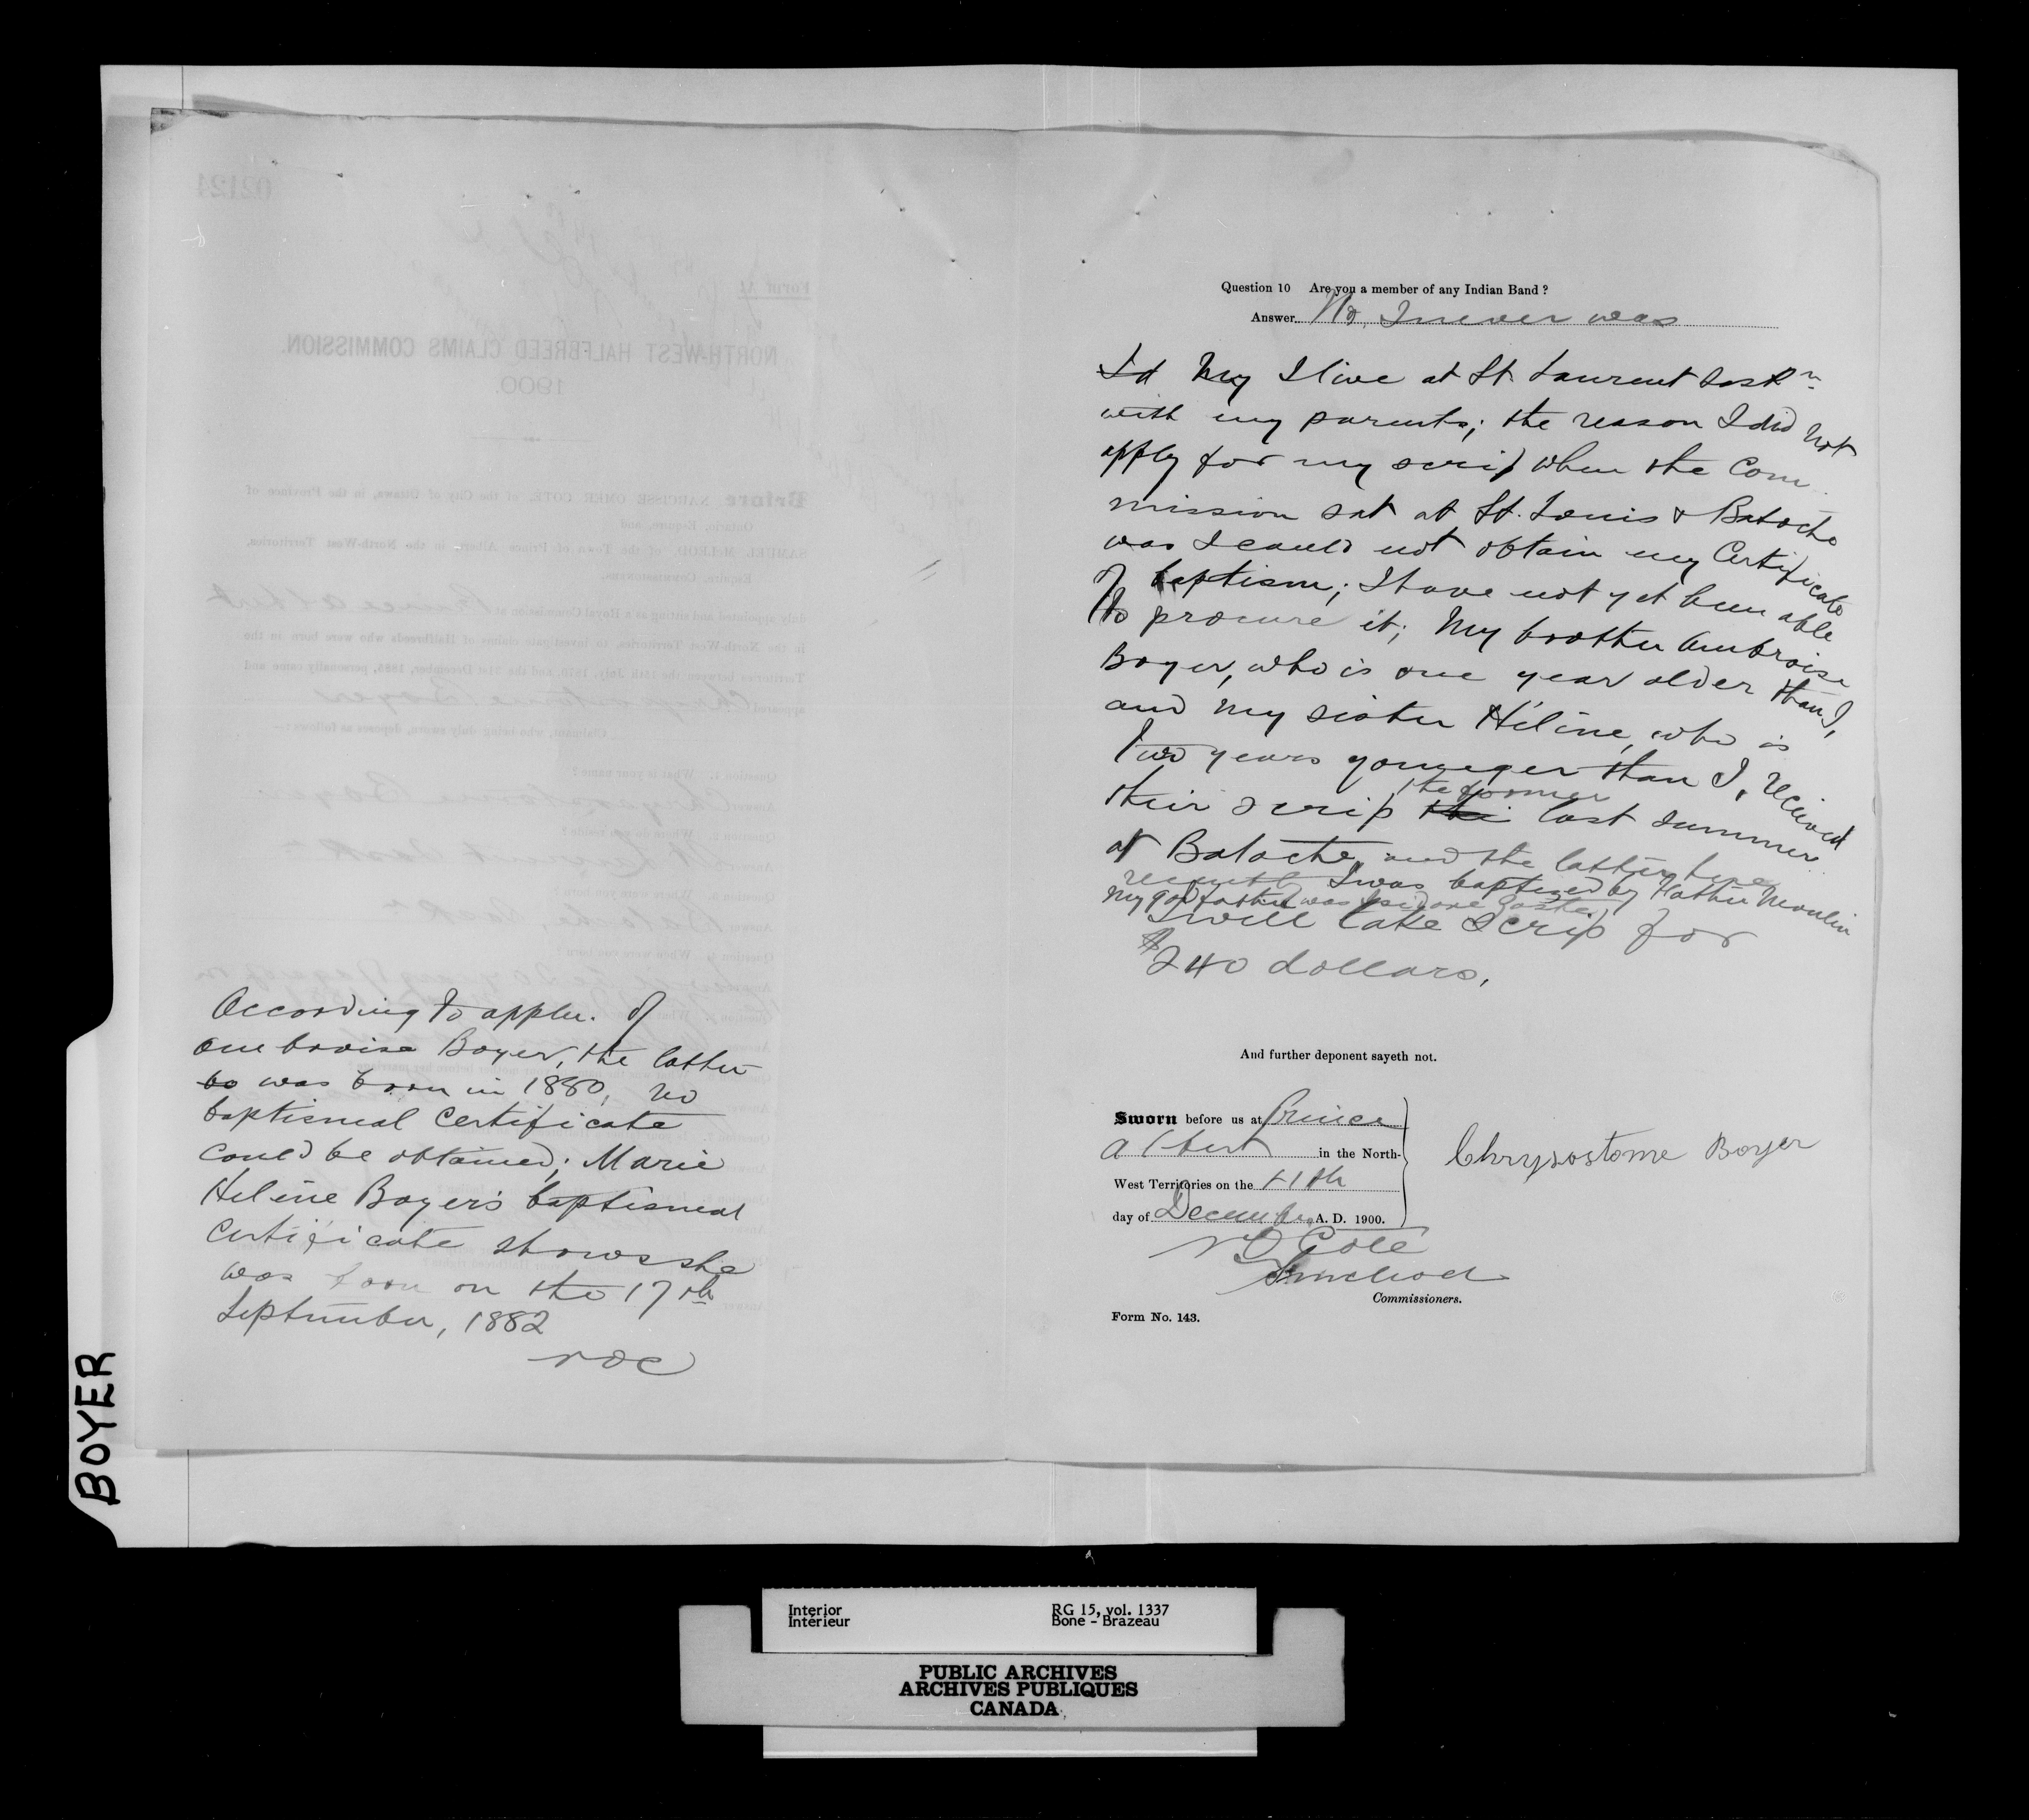 According to appln. of
Ambroise Boyer, the latter
bo was born in 1880, no
baptismal certificate
could be obtained; Marie
Helène Boyer's baptismal
certificate shows she
was born on the 17th
September, 1882
NOC
Question 10 Are you a member of any Indian Band ?
Answer No, I never was
Id My I live at St. Laurent Saskn
with my parents; the reason I did not
apply for my scrip when the Com
mission sat at St. Louis & Batoche
was I could not obtain my Certificate
of baptism; I have not yet been able
to procure it; My brother Ambroise
Boyer, who is one year older than I,
and my sister Hélène, who is
two years younger than I, received
the former
their scrip the last summer
at Batoche, and the latter here
recently I was baptized by Father Moulin
My god father was
I will take scrip for
$240 dollars.
And further deponent sayeth not.
Sworn before us at Prince
Albert in the North-
West Territories on the 11th
day of December A. D. 1900.
Chrysostome Boyer
NO Coté
SMcLeod
Commissioners.
Form No. 143.
BOYER
Interior RG 15, vol. 1337
Intérieur Bone - Brazeau
PUBLIC ARCHIVES
ARCHIVES PUBLIQUES
CANADA
02124
Form A1
NORTH-WEST HALFBREED CLAIMS COMMISSION.
1900.